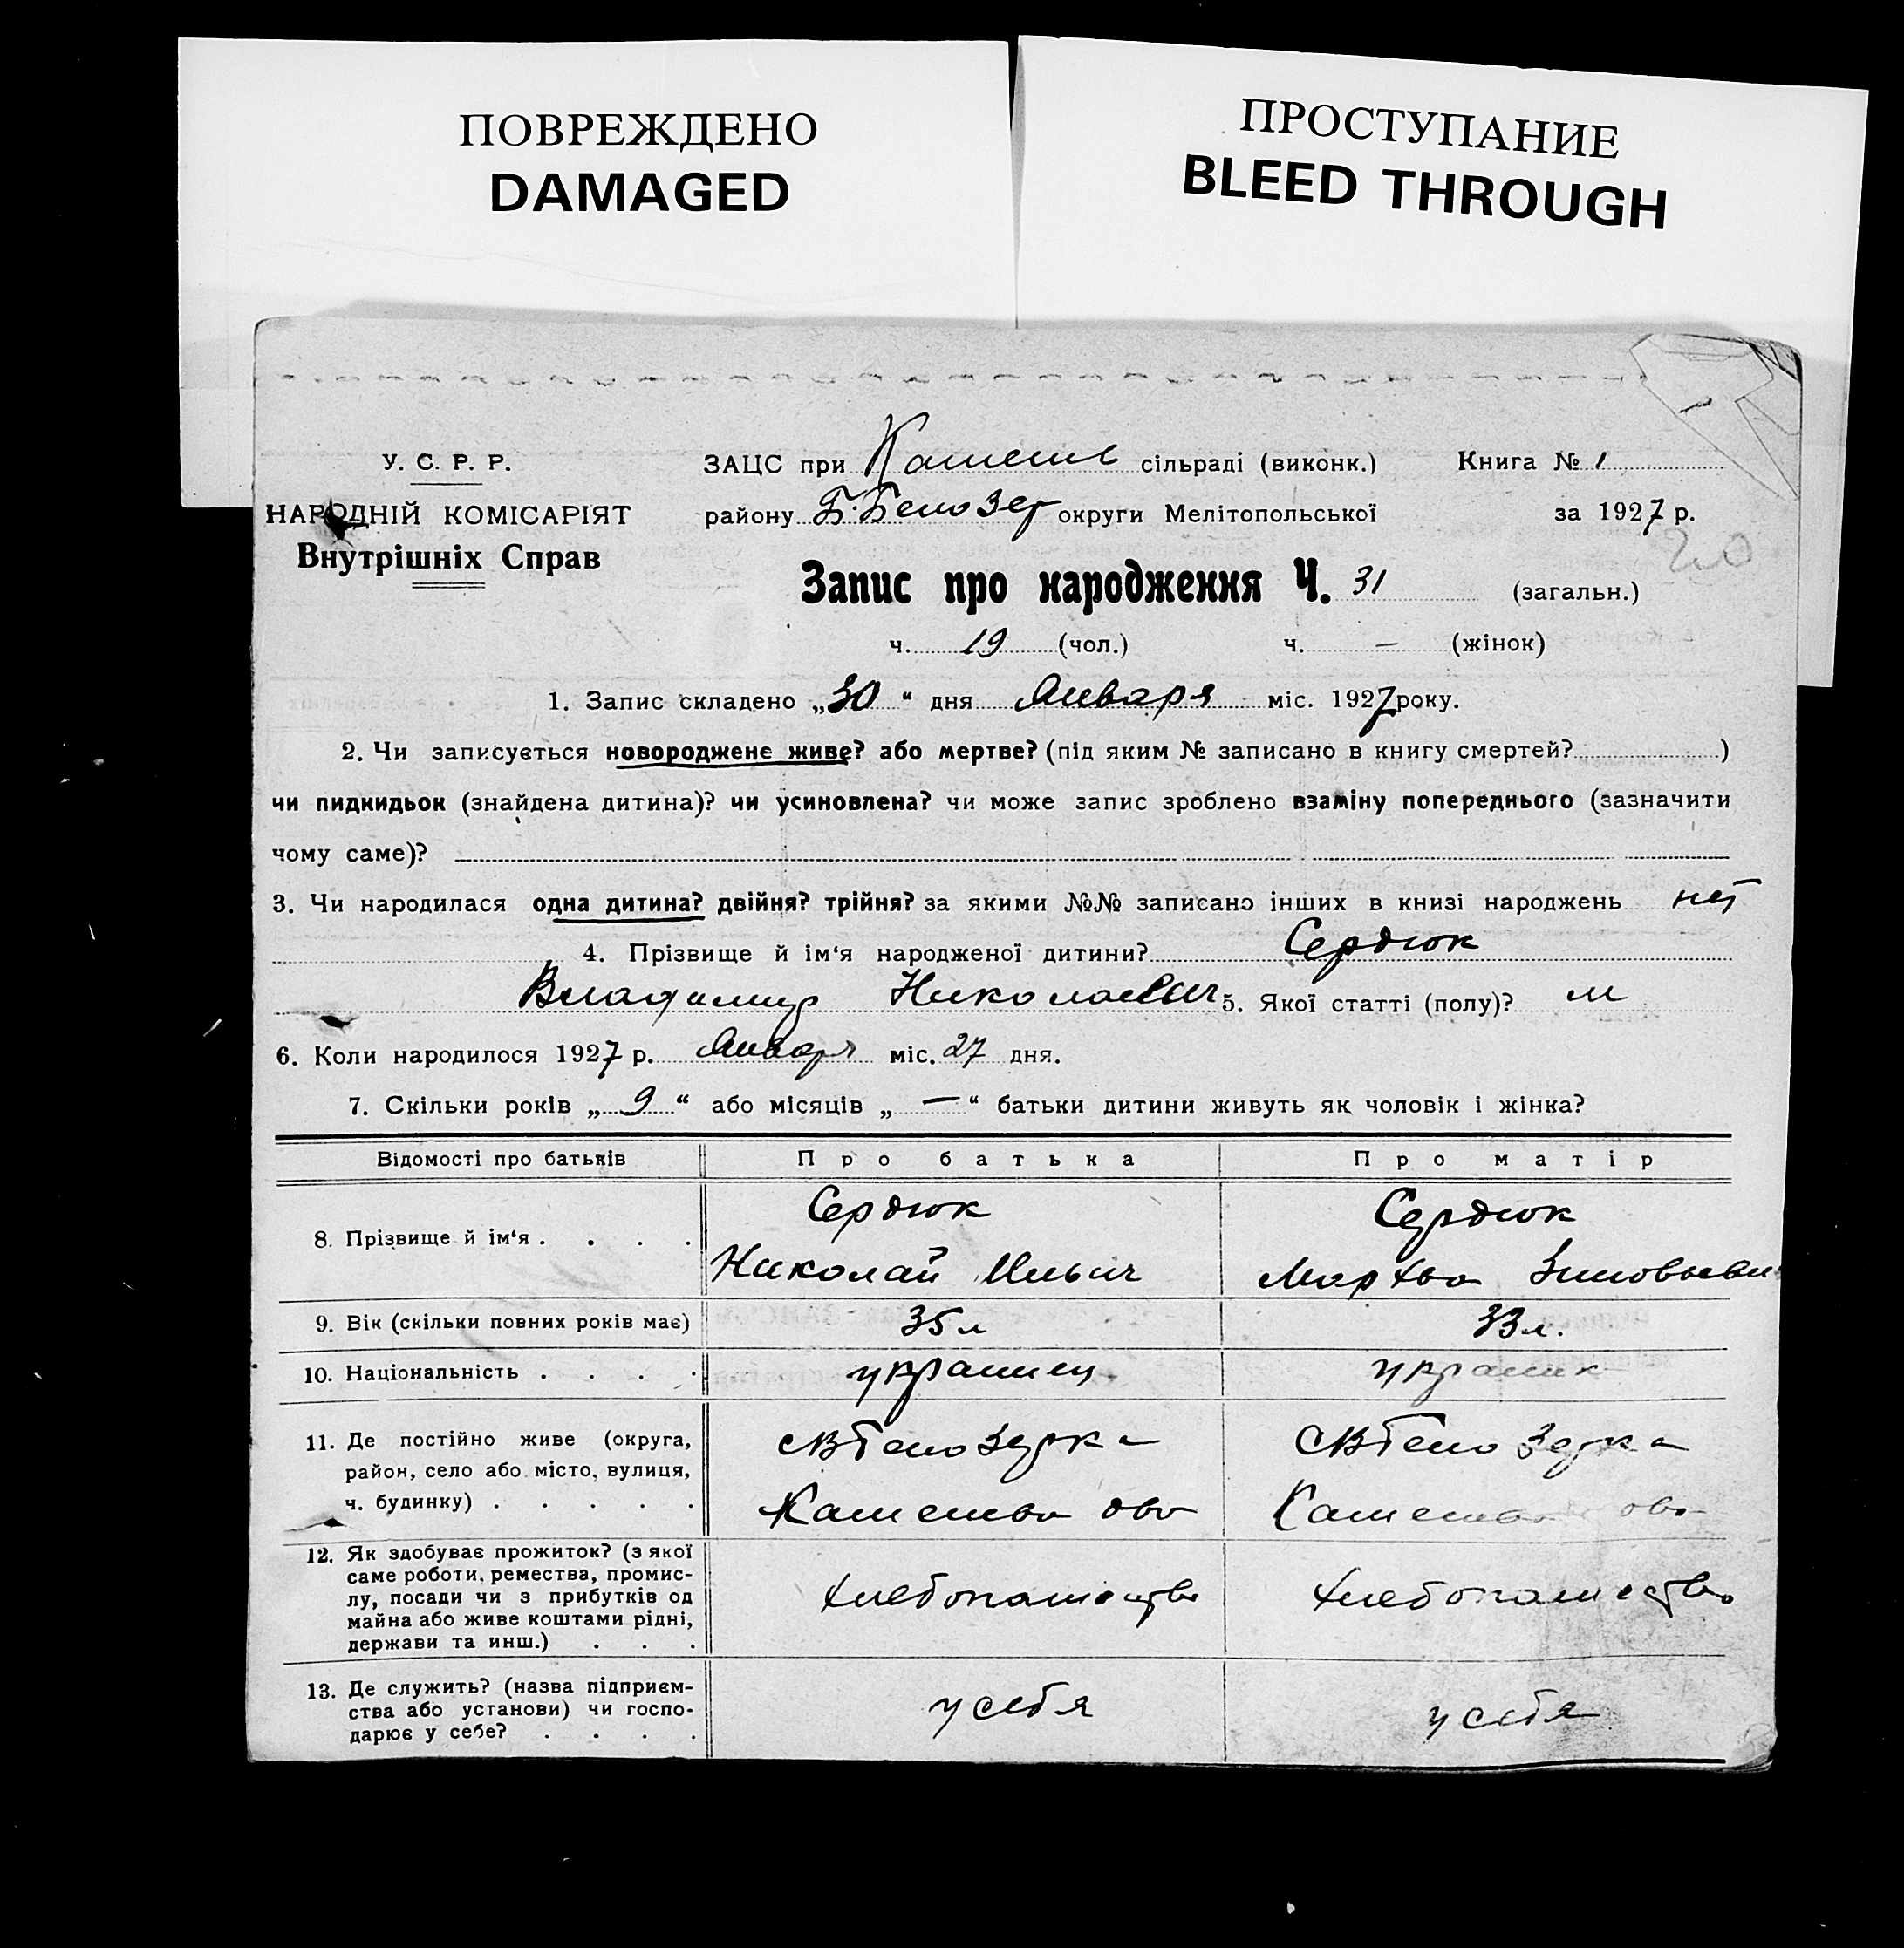 ПОВРЕЖДЕНО
DAMAGED
ПРОСТУПАНИЕ
BLEED THROUGH
У. С. Р. Р.
НАРОДНІЙ КОМІСАРІЯТ
Внутрішніх Справ
ЗАЦС при сільраді (виконк.) Книга № 1
району Б. Белозер округи Мелітопольської за 1927 р.
20
Запис про народження Ч. 31 (загальн.)
ч. 19 (чол.) ч. — (жінок)
1. Запис складено „30“ дня Января міс. 1927 року.
2. Чи записується новороджене живе? або мертве? (під яким № записано в книгу смертей? )
чи пидкидьок (знайдена дитина)? чи усиновлена? чи може запис зроблено взаміну попереднього (зазначити
чому саме)?
3. Чи народилася одна дитина? двійня? трійня? за якими №№ записано інших в книзі народжень нет
4. Прізвище й ім‘я народженої дитини? Сердюк
Владимир Николаевич 5. Якої статті (полу)? м
6. Коли народилося 1927 р. Января міс. 27 дня.
7. Скільки років „9“ або місяців „—“ батьки дитини живуть як чоловік і жінка?
Відомості про батьків Про батька Про матір
8. Прізвище й ім‘я . . . .
Сердюк
Николай Ильич
Сердюк
Марфа Зиновьевн
9. Вік (скільки повних років має) 35 л 33 л.
10. Національність . . . . украинец украинк
11. Де постійно живе (округа,
район, село або місто, вулиця,
ч. будинку) . . . . .
Белозерка
Белозерка
12. Як здобуває прожиток? (з якої
саме роботи, ремества, промис-
лу, посади чи з прибутків од
майна або живе коштами рідні,
держави та инш.) . . .
хлебопашество
хлебопашество
13. Де служить? (назва підприєм-
ства або установи) чи госпо-
дарює у себе? . . . .
у себя
у себя